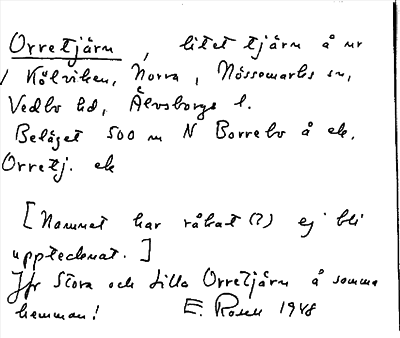 Orretjärn, litet tjärn å nr
1 Kölviken, Norra, Nössemarks sn,
Vedbo hd, Älvsborgs l.
Beläget 500 m N Borrebo å ek.
Orretj. ek
[Namnet har råkat (?) ej bli
upptecknat.]
Jfr Stora och Lilla Orretjärn å samma
hemman! E. Rosell 1948